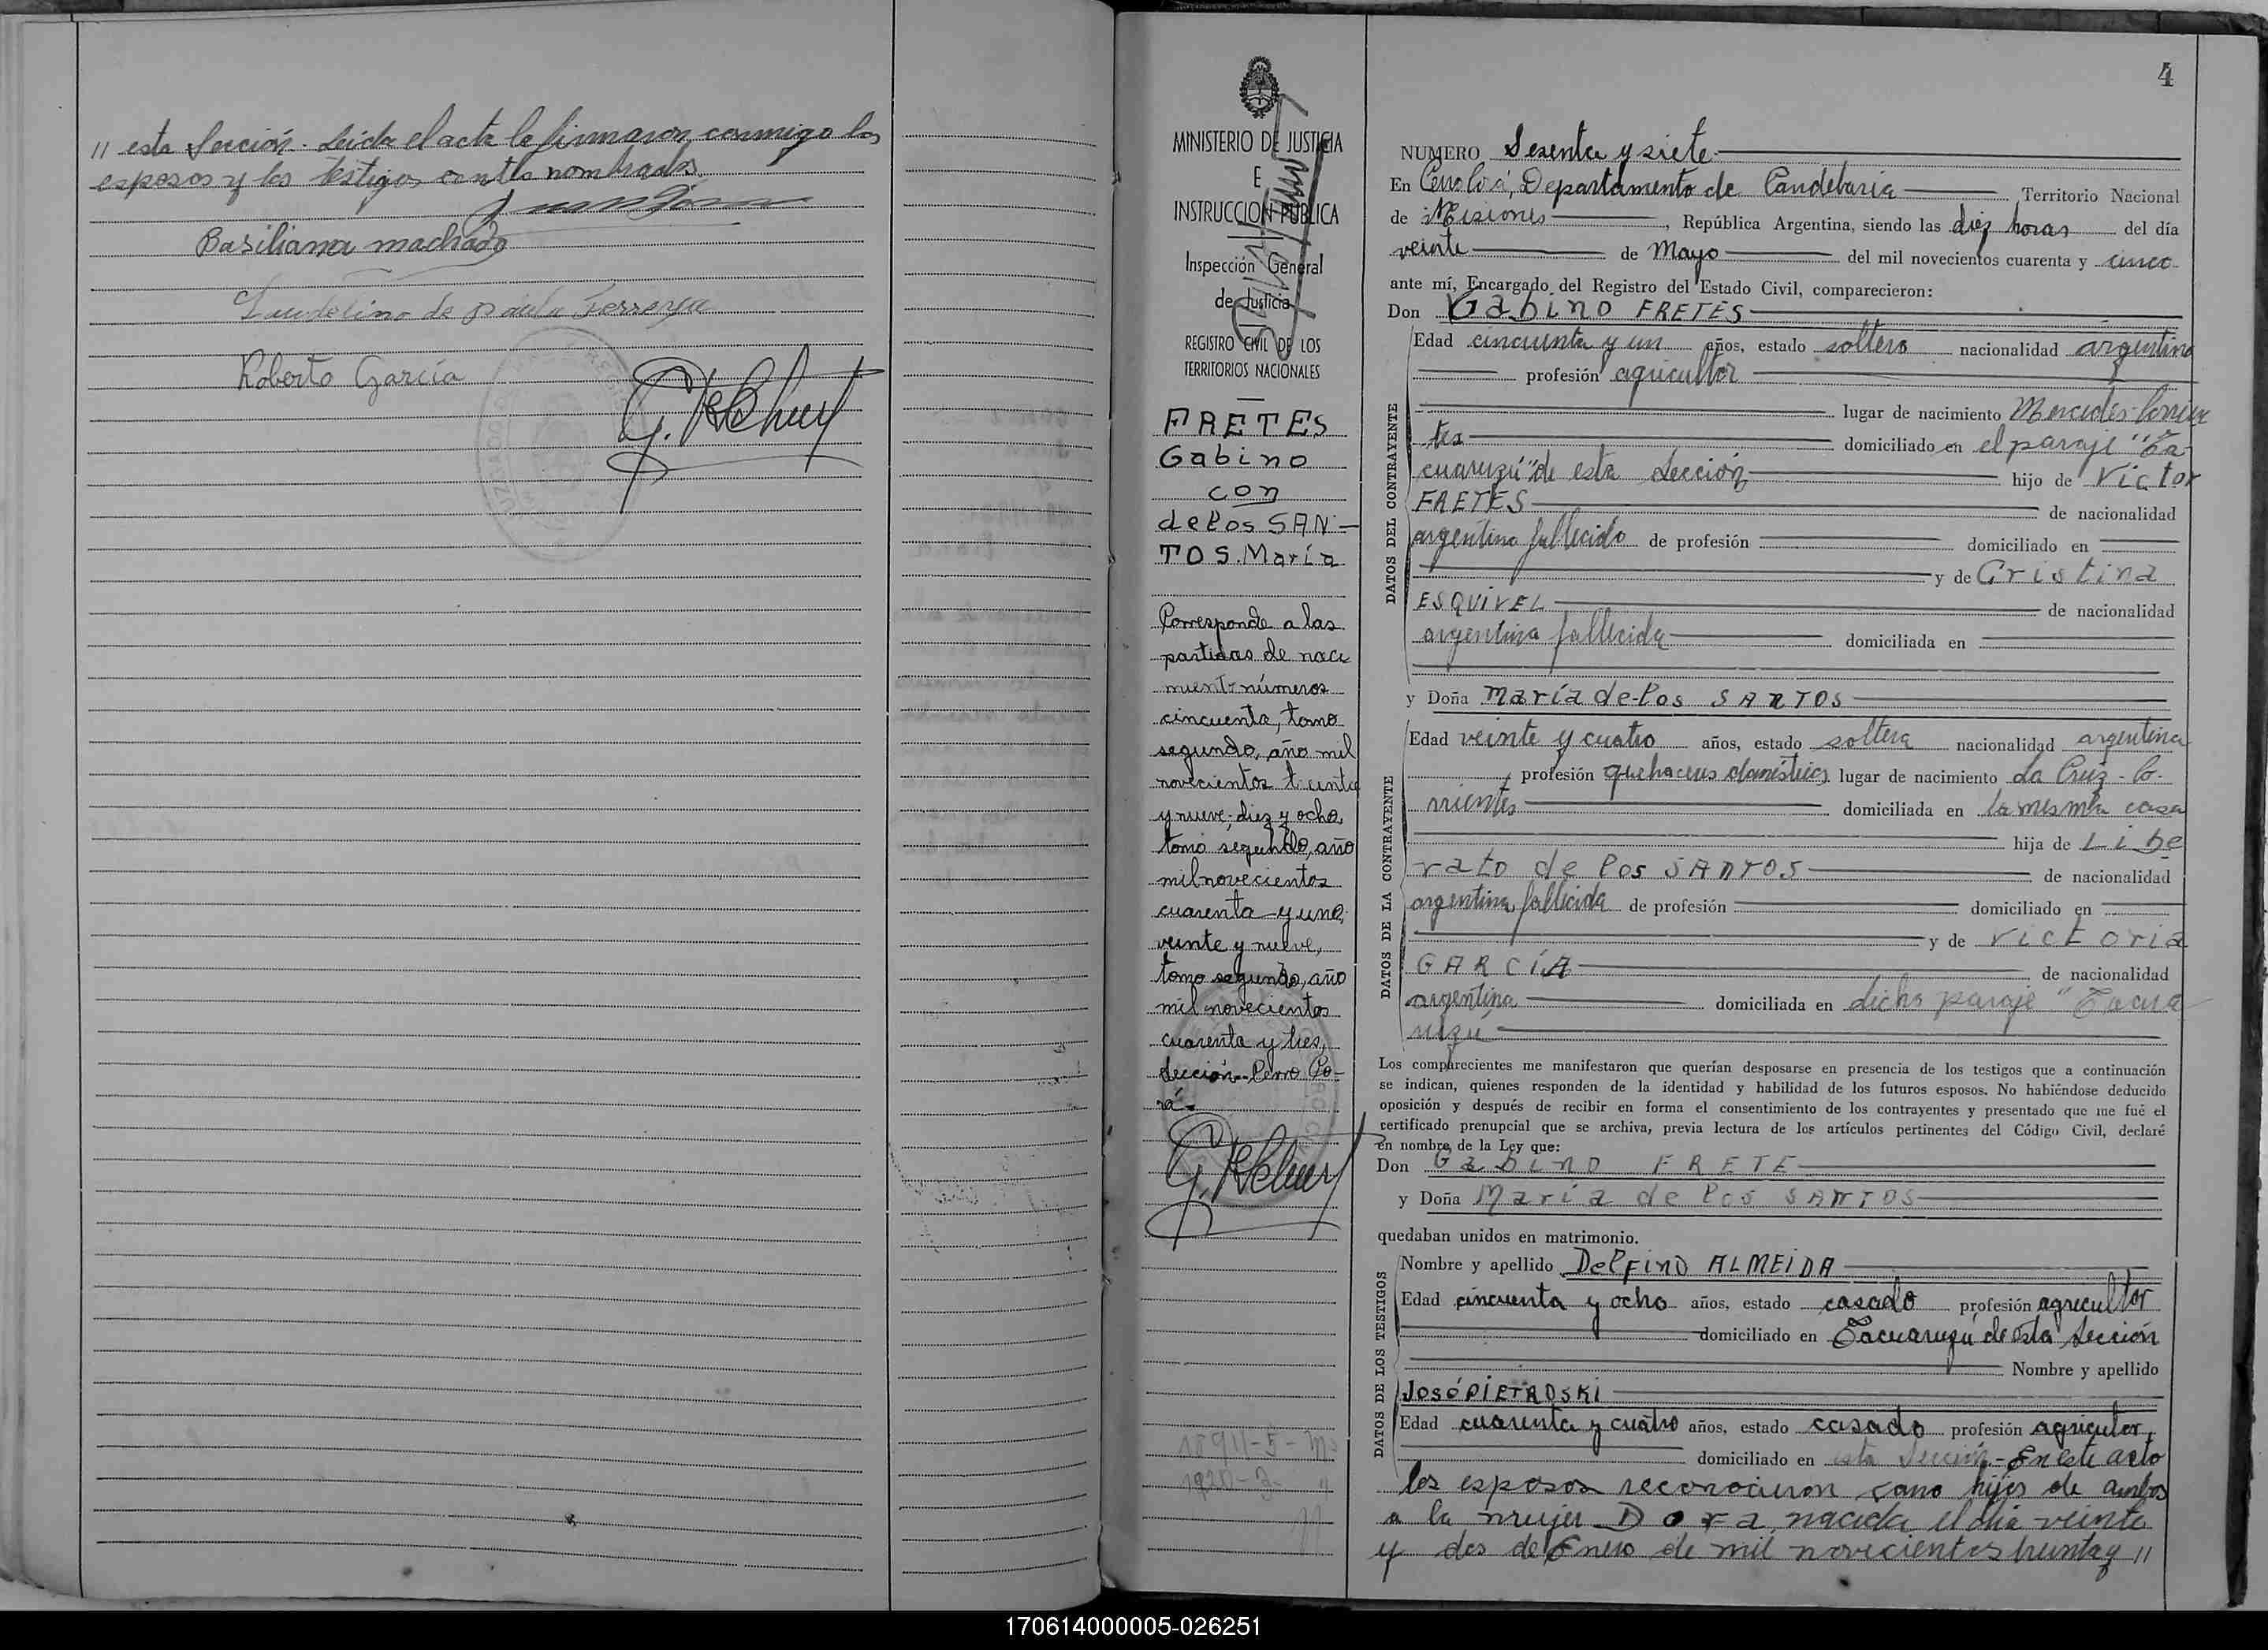 // esta Sección. Leída el acta la firmaron conmigo los
esposos y los testigos antes nombrados.
Basiliana machado
Laudelino de paula Ferreyra
Roberto García
MINISTERIO DE JUSTICIA
E
INSTRUCCION PUBLICA
Inspección General
de Justicia
REGISTRO CIVIL DE LOS
TERRITORIOS NACIONALES
FRETES
Gabino
con
de los SAN-
TOS. María
Corresponde a las
partidas de naci
miento números
cincuenta, tomo
segundo, año mil
novecientos treinta
y nueve; diez y ocho,
tomo segundo, año
mil novecientos
cuarenta y uno;
veinte y nueve,
tomo segundo, año
mil novecientos
cuarenta y tres,
Sección Cerro Co-
rá.-
4
NUMERO Sesenta y siete
En Cerro Corá, Departamento de Candelaria Territorio Nacional
de Misiones, República Argentina, siendo las diez horas del día
veinte de Mayo del mil novecientos cuarenta y cinco
ante mí, Encargado del Registro del Estado Civil, comparecieron:
Don Gabino FRETES
DATOS DEL CONTRAYENTE
Edad cincuenta y un años, estado soltero nacionalidad argentino
profesión agricultor
lugar de nacimiento Mercedes-Corrien
tes domiciliado en el paraje "Ta
cuaruzú" de esta Sección hijo de Victor
FRETES de nacionalidad
argentino fallecido de profesión domiciliado en
y de Cristina
ESQUIVEL de nacionalidad
argentina fallecida domiciliada en
y Doña María de los SANTOS
DATOS DE LA CONTRAYENTE
Edad veinte y cuatro años, estado soltera nacionalidad argentina
profesión quehaceres domésticos lugar de nacimiento La Cruz-Co-
rrientes domiciliada en la misma casa
hija de Libe
rato de los SANTOS de nacionalidad
argentina fallecida de profesión domiciliado en
y de Victoria
GARCÍA de nacionalidad
argentina domiciliada en dicho paraje "Tacua
ruzú"
Los comparecientes me manifestaron que querían desposarse en presencia de los testigos que a continuación
se indican, quienes responden de la identidad y habilidad de los futuros esposos. No habiéndose deducido
oposición y después de recibir en forma el consentimiento de los contrayentes y presentado que me fué el
certificado prenupcial que se archiva, previa lectura de los artículos pertinentes del Código Civil, declaré
en nombre de la Ley que:
Don Gabino FRETE
y Doña María de los SANTOS
quedaban unidos en matrimonio.
DATOS DE LOS TESTIGOS
Nombre y apellido Delfino ALMEIDA
Edad cincuenta y ocho años, estado casado profesión agricultor
domiciliado en Tacuaruzú de esta Sección
Nombre y apellido
José PIETROSKI
Edad cuarenta y cuatro años, estado casado profesión agricultor,
domiciliado en esta Sección.-En este acto
los esposos reconocieron como hijos de ambos
a la mujer Dora, nacida el día veinte
y dos de Enero de mil novecientos treinta y //
170614000005-026251